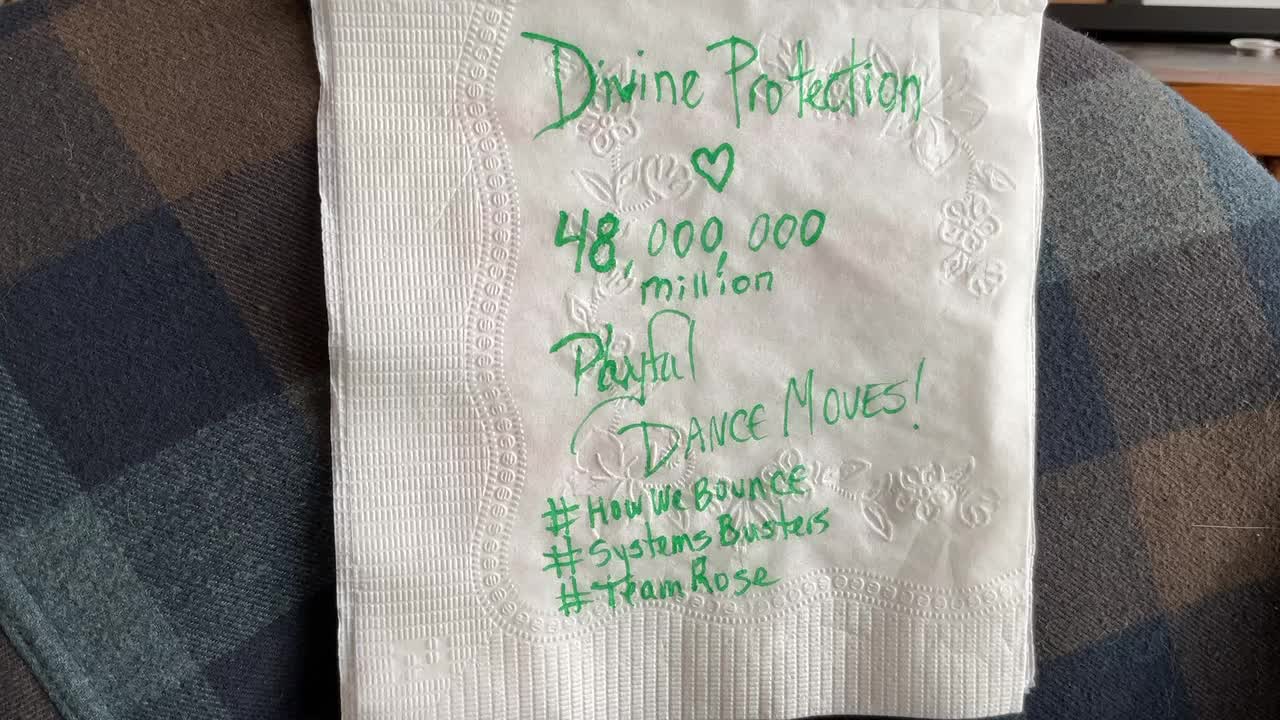 Divine Protection
♡
48,000,000
million
Playful
DANCE MOVES!
#HOWWEBOUNCE
#SystemsBusters
#TeamRose